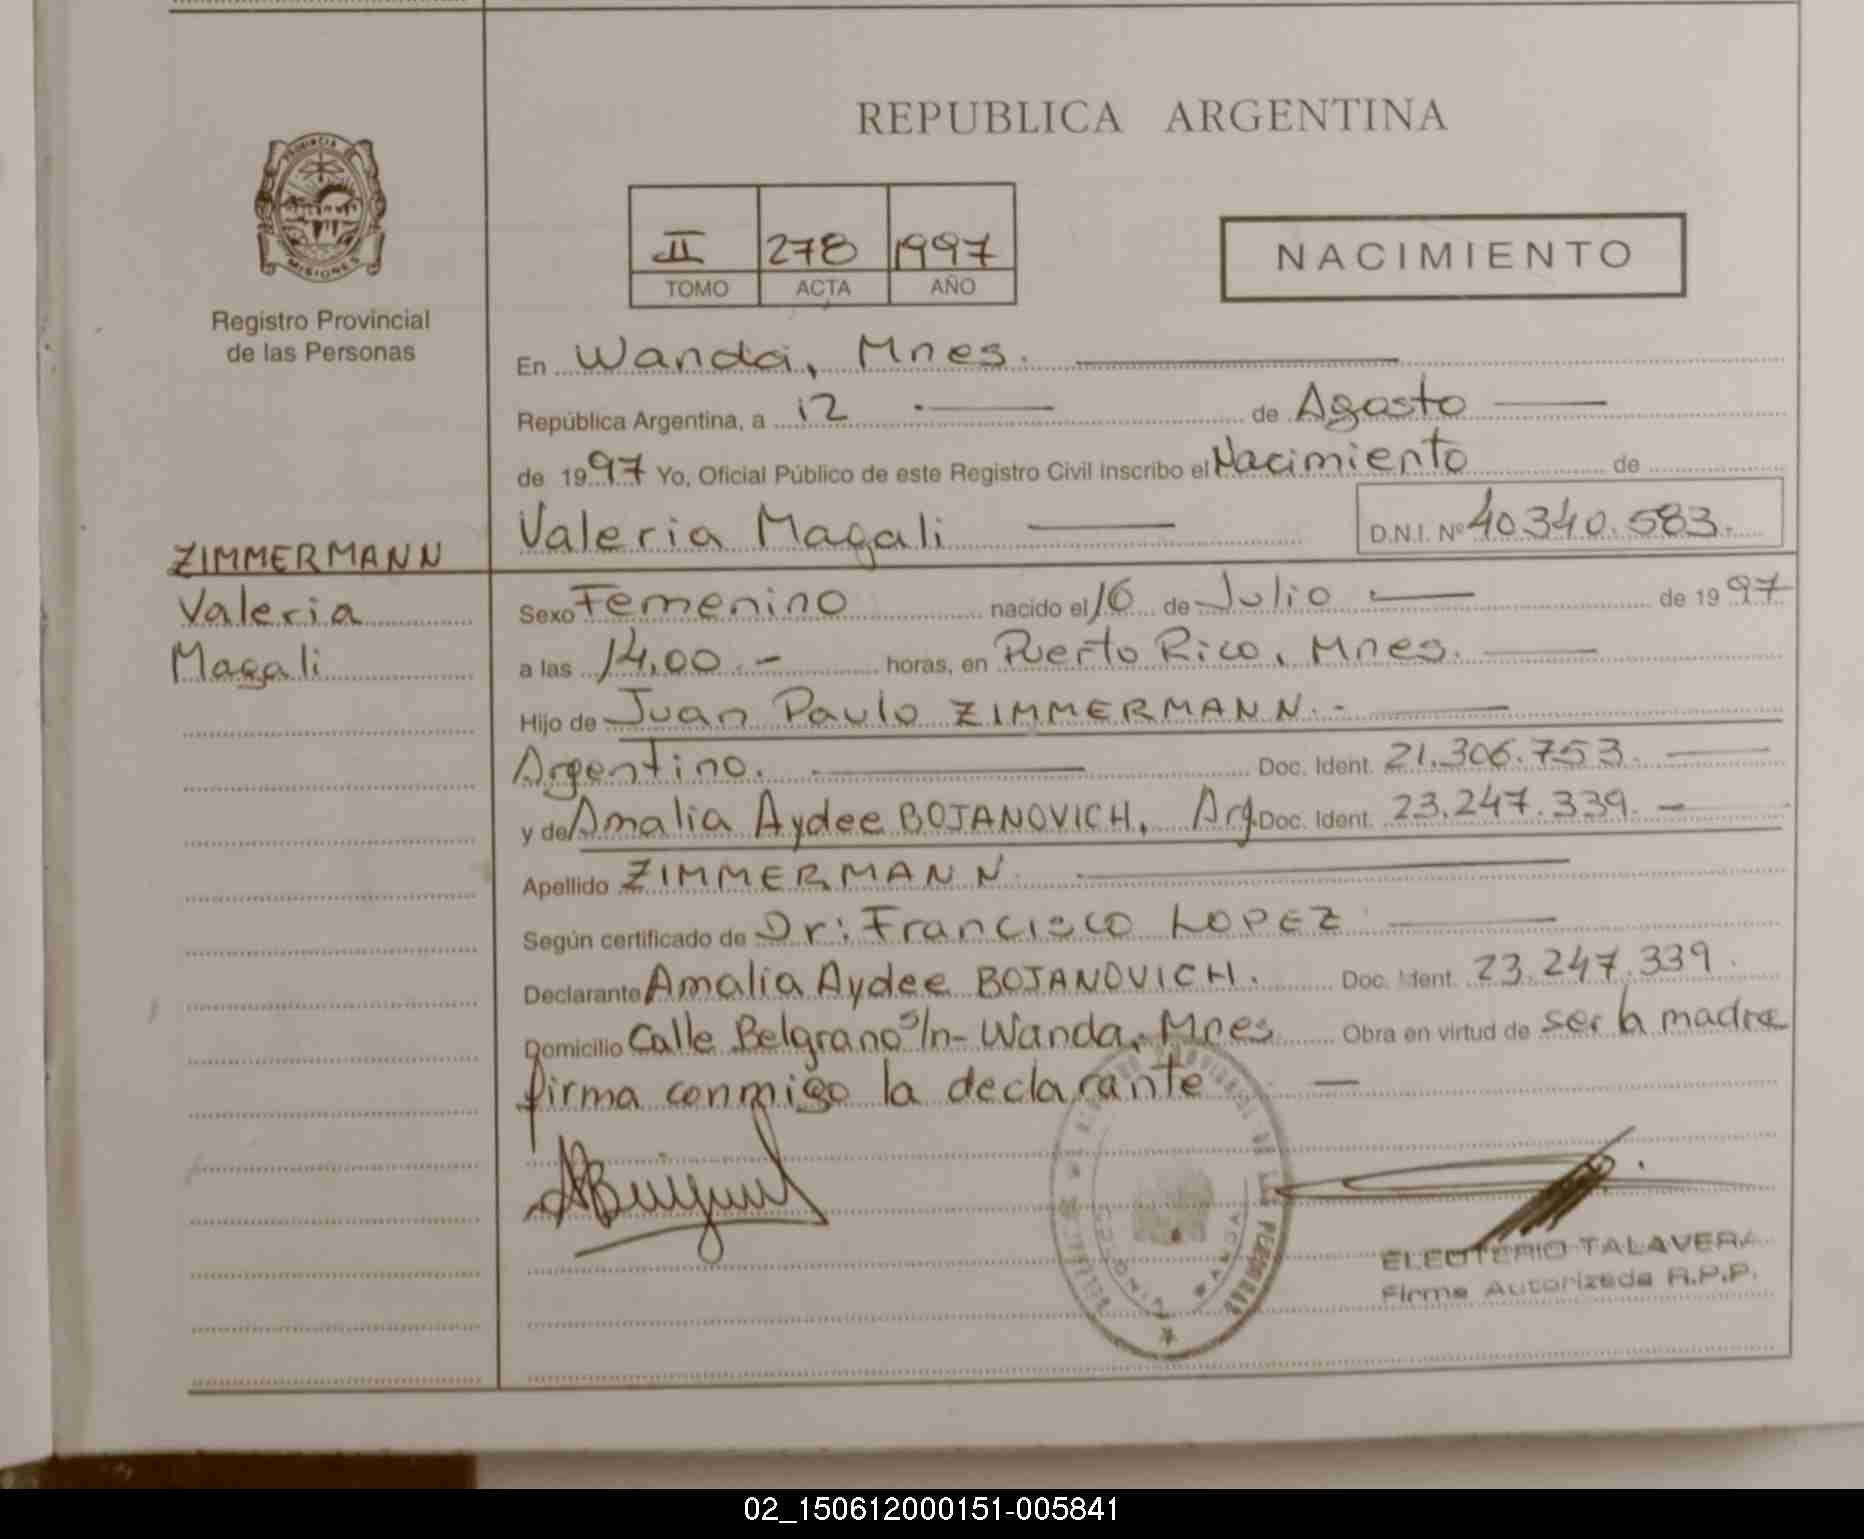 REPUBLICA ARGENTINA
PROVINCIA
MISIONES
Registro Provincial
de las Personas
II 278 1997
TOMO ACTA AÑO
NACIMIENTO
En Wanda, Mnes.
República Argentina, a 12 de Agosto
de 1997 Yo, Oficial Público de este Registro Civil inscribo el Nacimiento de
Valeria Magali D.N.I. Nº 40340.583.
ZIMMERMANN
Valeria
Magali
Sexo Femenino nacido el 16 de Julio de 1997
a las 14,00.- horas, en Puerto Rico, Mnes.
Hijo de Juan Paulo ZIMMERMANN.-
Argentino. Doc. Ident. 21.306.753.
y de Amalia Aydee BOJANOVICH, Arg. Doc. Ident. 23.247.339.-
Apellido ZIMMERMANN
Según certificado de Dr: Francisco LOPEZ
Declarante Amalia Aydee BOJANOVICH. Doc. Ident. 23.247.339.
Domicilio Calle Belgrano s/n- Wanda, Mnes Obra en virtud de ser la madre
firma conmigo la declarante
WANDA
ELEOTERIO TALAVERA
Firma Autorizada R.P.P.
02_150612000151-005841